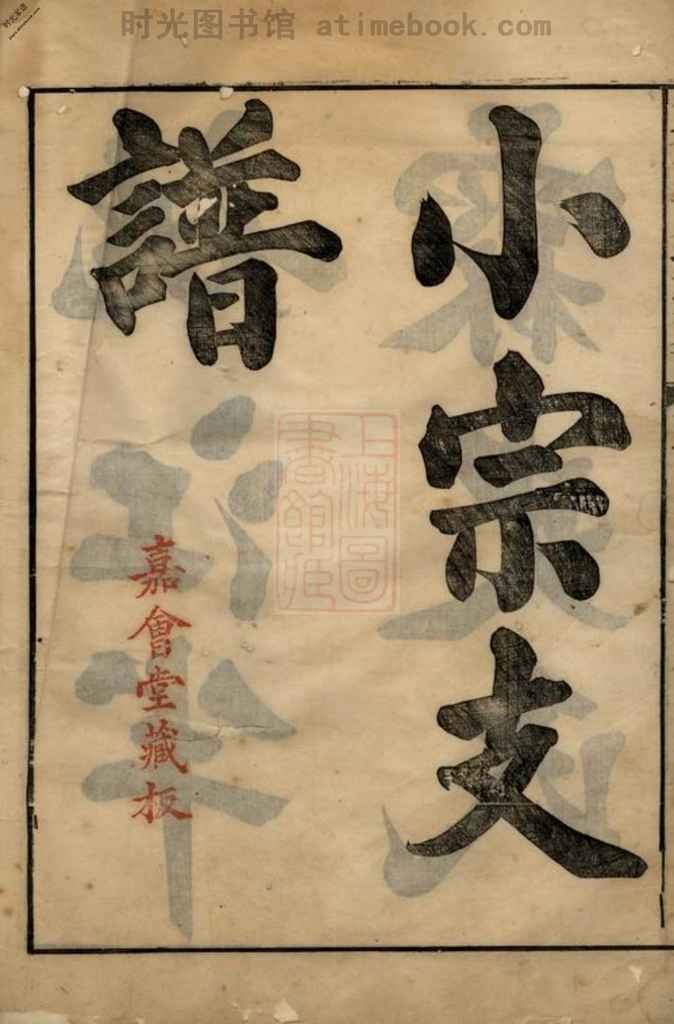 时光图书馆 atimebook.com
小宗支
譜
嘉會堂藏板
上海圖
書館藏